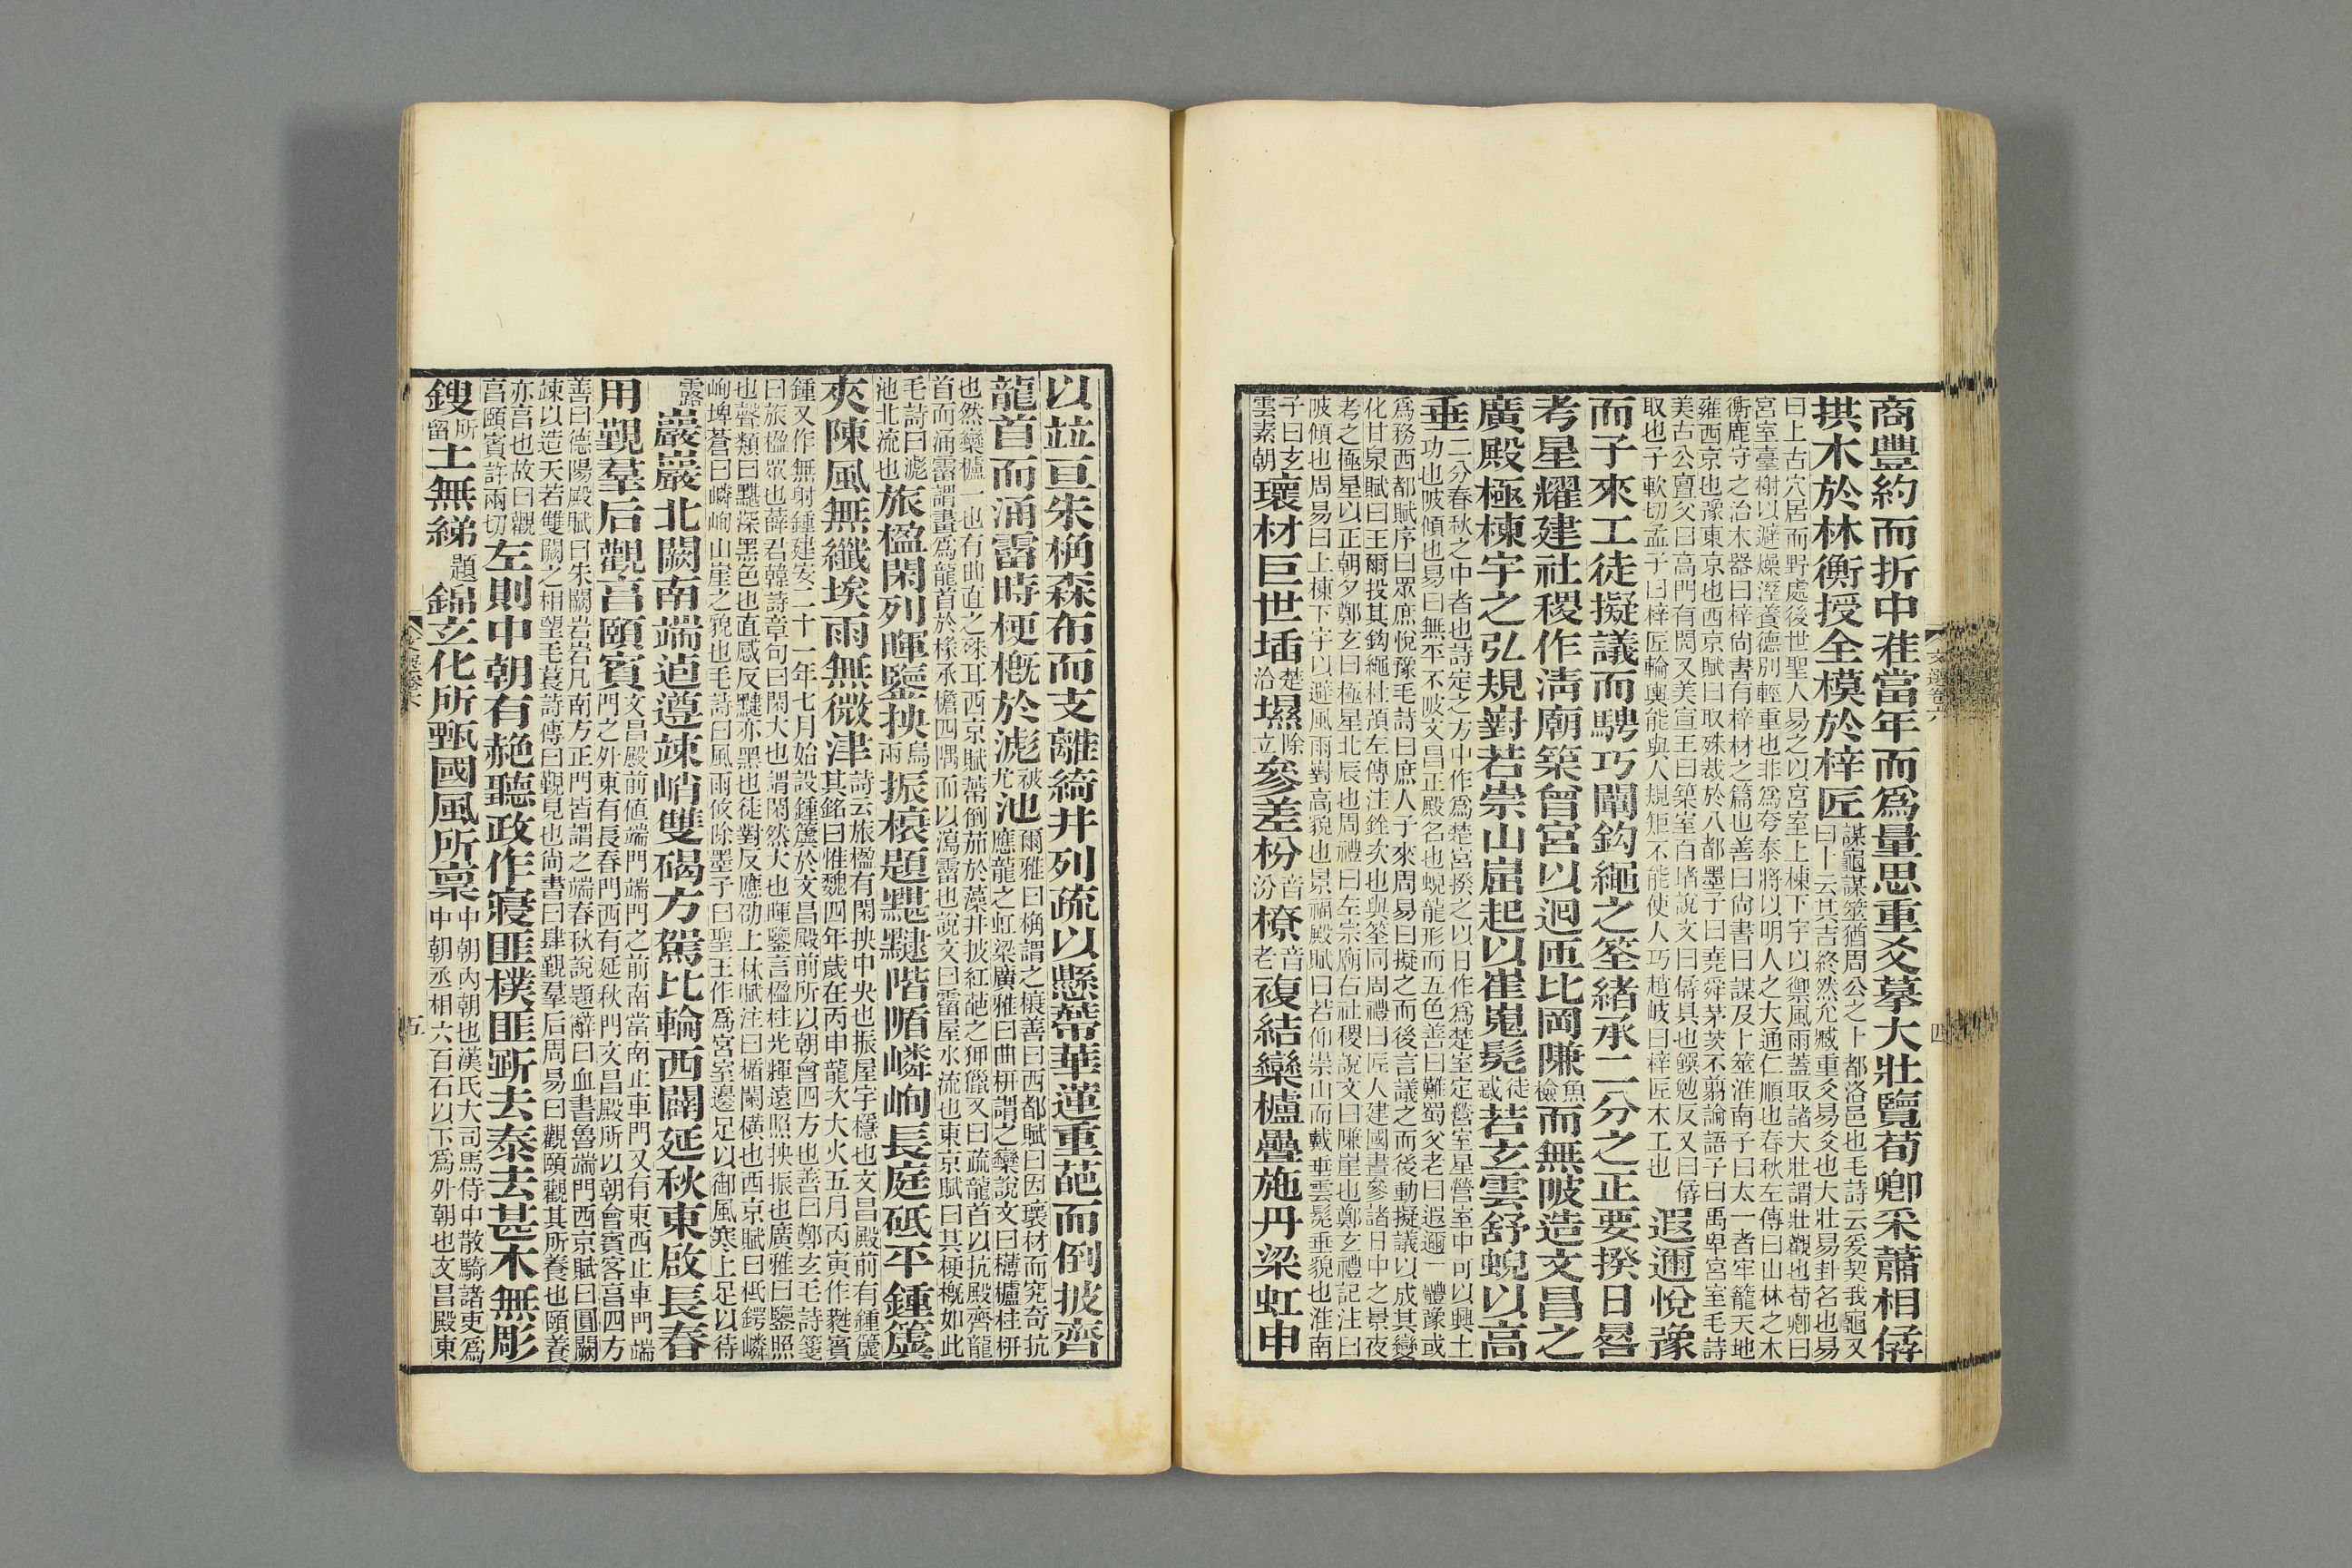 商豐約而折中准當年而爲量思重爻摹大壯覽荀卿采蕭相僝
拱木於林衡授全模於梓匠
謀龜謀筮猶周公之卜都洛邑也毛詩云爰契我龜又
曰卜云其吉終然允臧重爻易爻也大壯易卦名也易
曰上古穴居而野處後世聖人易之以宮室上棟下宇以禦風雨蓋取諸大壯謂壯觀也荀卿曰
宮室臺榭以避燥溼養德別輕重也非爲夸泰將以明人之大通仁順也春秋左傳曰山林之木
衡鹿守之治木器曰梓尚書有梓材之篇也善曰尚書曰謀及卜筮淮南子曰太一者牢籠天地
雍西京也豫東京也西京賦曰取殊裁於八都墨子曰堯舜茅茨不翦論語子曰禹卑宮室毛詩
美古公亶父曰高門有閌又美宣王曰築室百堵說文曰僝具也饌勉反又曰僝
取也子軟切孟子曰梓匠輪輿能與人規矩不能使人巧趙岐曰梓匠木工也
遐邇悅豫
而子來工徒擬議而騁巧闡鈎繩之筌緒承二分之正要揆日晷
考星耀建社稷作清廟築曾宮以迴匝比岡隒魚檢而無陂造文昌之
廣殿極棟宇之弘規對若崇山崛起以崔嵬髧徒惑若玄雲舒蜺以高
垂
二分春秋之中者也詩定之方中作爲楚宮揆之以日作爲楚室定營室星營室中可以興土
功也陂傾也易曰無平不陂文昌正殿名也蜺龍形而五色善曰難蜀父老曰遐邇一體豫或
爲務西都賦序曰眾庶悅豫毛詩曰庶人子來周易曰擬之而後言議之而後動擬議以成其變
化甘泉賦曰王爾投其鈎繩杜預左傳注銓次也與筌同周禮曰匠人建國晝參諸日中之景夜
考之極星以正朝夕鄭玄曰極星北辰也周禮曰左宗廟右社稷說文曰隒崖也鄭玄禮記注曰
陂傾也周易曰上棟下宇以避風雨對高貌也景福殿賦曰若仰崇山而戴垂雲髧垂貌也淮南
子曰玄
雲素朝
瓌材巨世插楚洽㙷除立參差枌音汾橑音老複結欒櫨疊施丹梁虹申
文選卷六
四
以竝亘朱桷森布而支離綺井列疏以懸蔕華蓮重葩而倒披齊
龍首而涌霤時梗概於滮被尤池
爾雅曰桷謂之榱善曰西都賦曰因瓌材而究奇抗
應龍之虹梁廣雅曰曲枅謂之欒說文曰欂櫨柱枅
也然欒櫨一也有曲直之殊耳西京賦蔕倒茄於藻井披紅葩之狎獵又曰疏龍首以抗殿齊龍
首而涌霤謂畫爲龍首於椽承檐四隅而以瀉霤也說文曰霤屋水流也東京賦曰其梗概如此
毛詩曰滮
池北流也
旅楹閑列暉鑒抰烏兩振榱題黮䨴階𨹟嶙峋長庭砥平鍾簴
夾陳風無纖埃雨無微津
詩云旅楹有閑抰中央也振屋宇穩也文昌殿前有鍾簴
其銘曰惟魏四年歲在丙申龍次大火五月丙寅作蕤賓
鍾又作無射鍾建安二十一年七月始設鍾簴於文昌殿前所以朝會四方也善曰鄭玄毛詩箋
曰旅楹眾也薛君韓詩章句曰閑大也謂閑然大也暉鑒言楹柱光輝遠照抰振也廣雅曰鑒照
也聲類曰黮深黑色也直感反䨴亦黑也徒對反應劭上林賦注曰楯闌橫也西京賦曰柢鍔嶙
峋埤蒼曰嶙峋山崖之貌也毛詩曰風雨攸除墨子曰聖王作爲宮室邊足以御風寒上足以待
露
巖巖北闕南端逌遵竦峭雙碣方駕比輪西闢延秋東啟長春
用覲羣后觀享頤賓
文昌殿前值端門端門之前南當南止車門又有東西止車門端
門之外東有長春門西有延秋門文昌殿所以朝會賓客享四方
善曰德陽殿賦曰朱闕岩岩凡南方正門皆謂之端春秋說題辭曰血書魯端門西京賦曰圓闕
竦以造天若雙闕之相望毛萇詩傳曰覲見也尚書曰肆覲羣后周易曰觀頤觀其所養也頤養
亦享也故曰觀
享頤賓許兩切
左則中朝有赩聽政作寢匪樸匪斲去泰去甚木無彫
鎪所留土無綈題錦玄化所甄國風所稟
中朝內朝也漢氏大司馬侍中散騎諸吏爲
中朝丞相六百石以下爲外朝也文昌殿東
文選卷六
五